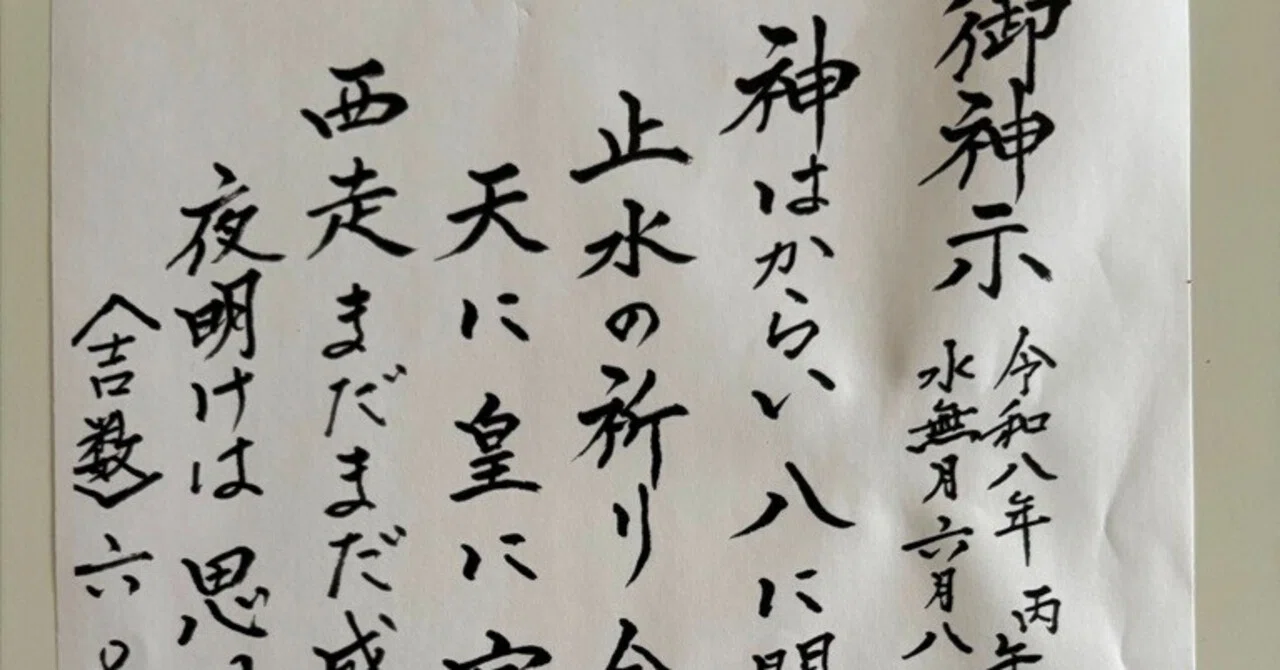 御神示
令和八年 丙
水無月 六月八
神はからい 八に
止水の祈り
天に 皇に
西走 まだまだ
夜明けは 思
〈吉数〉 六